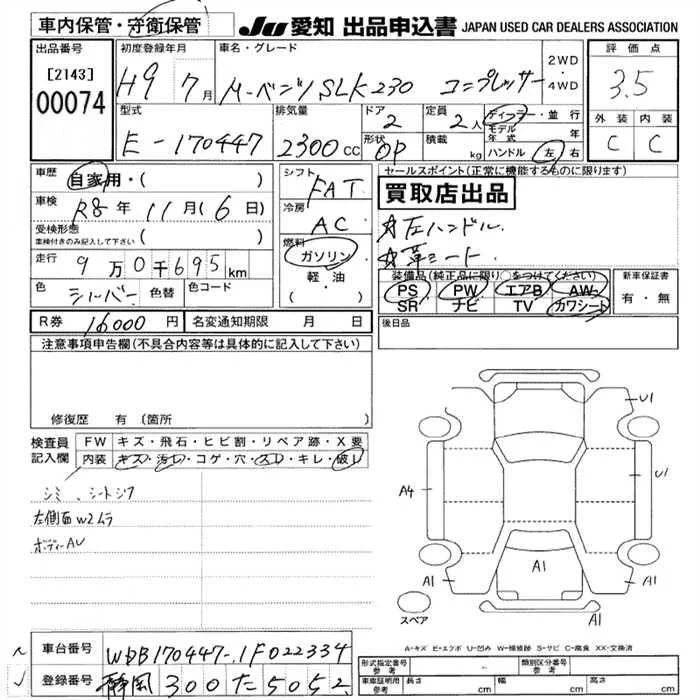 車内保管・守衛保管
JU 愛知 出品申込書 JAPAN USED CAR DEALERS ASSOCIATION
出品番号
[2143]
00074
初度登録年月
H9 7月
車名・グレード
M・ベンツ SLK230 コンプレッサー
2WD
・
4WD
評価点
3.5
外装 内装
C C
型式
E-170447
排気量
2300cc
ドア
2
形状
OP
定員
2人
積載
kg
ディーラー・並行
モデル年式 年
ハンドル 左・右
車歴
自家用・( )
車検
R8年 11月(6日)
受検形態
車検付きのみ記入して下さい ( )
走行
9万0千695km
色
シルバー
色替
色コード
( )
シフト
FAT
冷房
AC
燃料
ガソリン
軽・油
( )
セールスポイント(正常に機能するものに限ります)
買取店出品
☆左ハンドル.
☆革シート
装備品(純正品に限り○をつけてください)
PS PW エアB AW
SR ナビ TV カワシート
新車保証書
有・無
R券 16000円
名変通知期限 月 日
後日品
注意事項申告欄(不具合内容等は具体的に記入して下さい)
修復歴 有(箇所
検査員
記入欄
FW キズ・飛石・ヒビ割・リペア跡・X要
内装 キズ・汚レ・コゲ・穴・スレ・キレ・破レ
シミ、シートシワ
左側面W2ムラ
ボディーAU
U1
U1
A4
A1
A1
A1
A1
スペア
A-キズ E-エクボ U-凹み W-補修跡 S-サビ C-腐食 XX-交換済
車台番号 WDB170447-1F022334
登録番号 静岡 300 た 5052
形式指定番号
参考
類別区分番号
参考
-
車庫証明用
参考
長さ cm
幅 cm
高さ cm